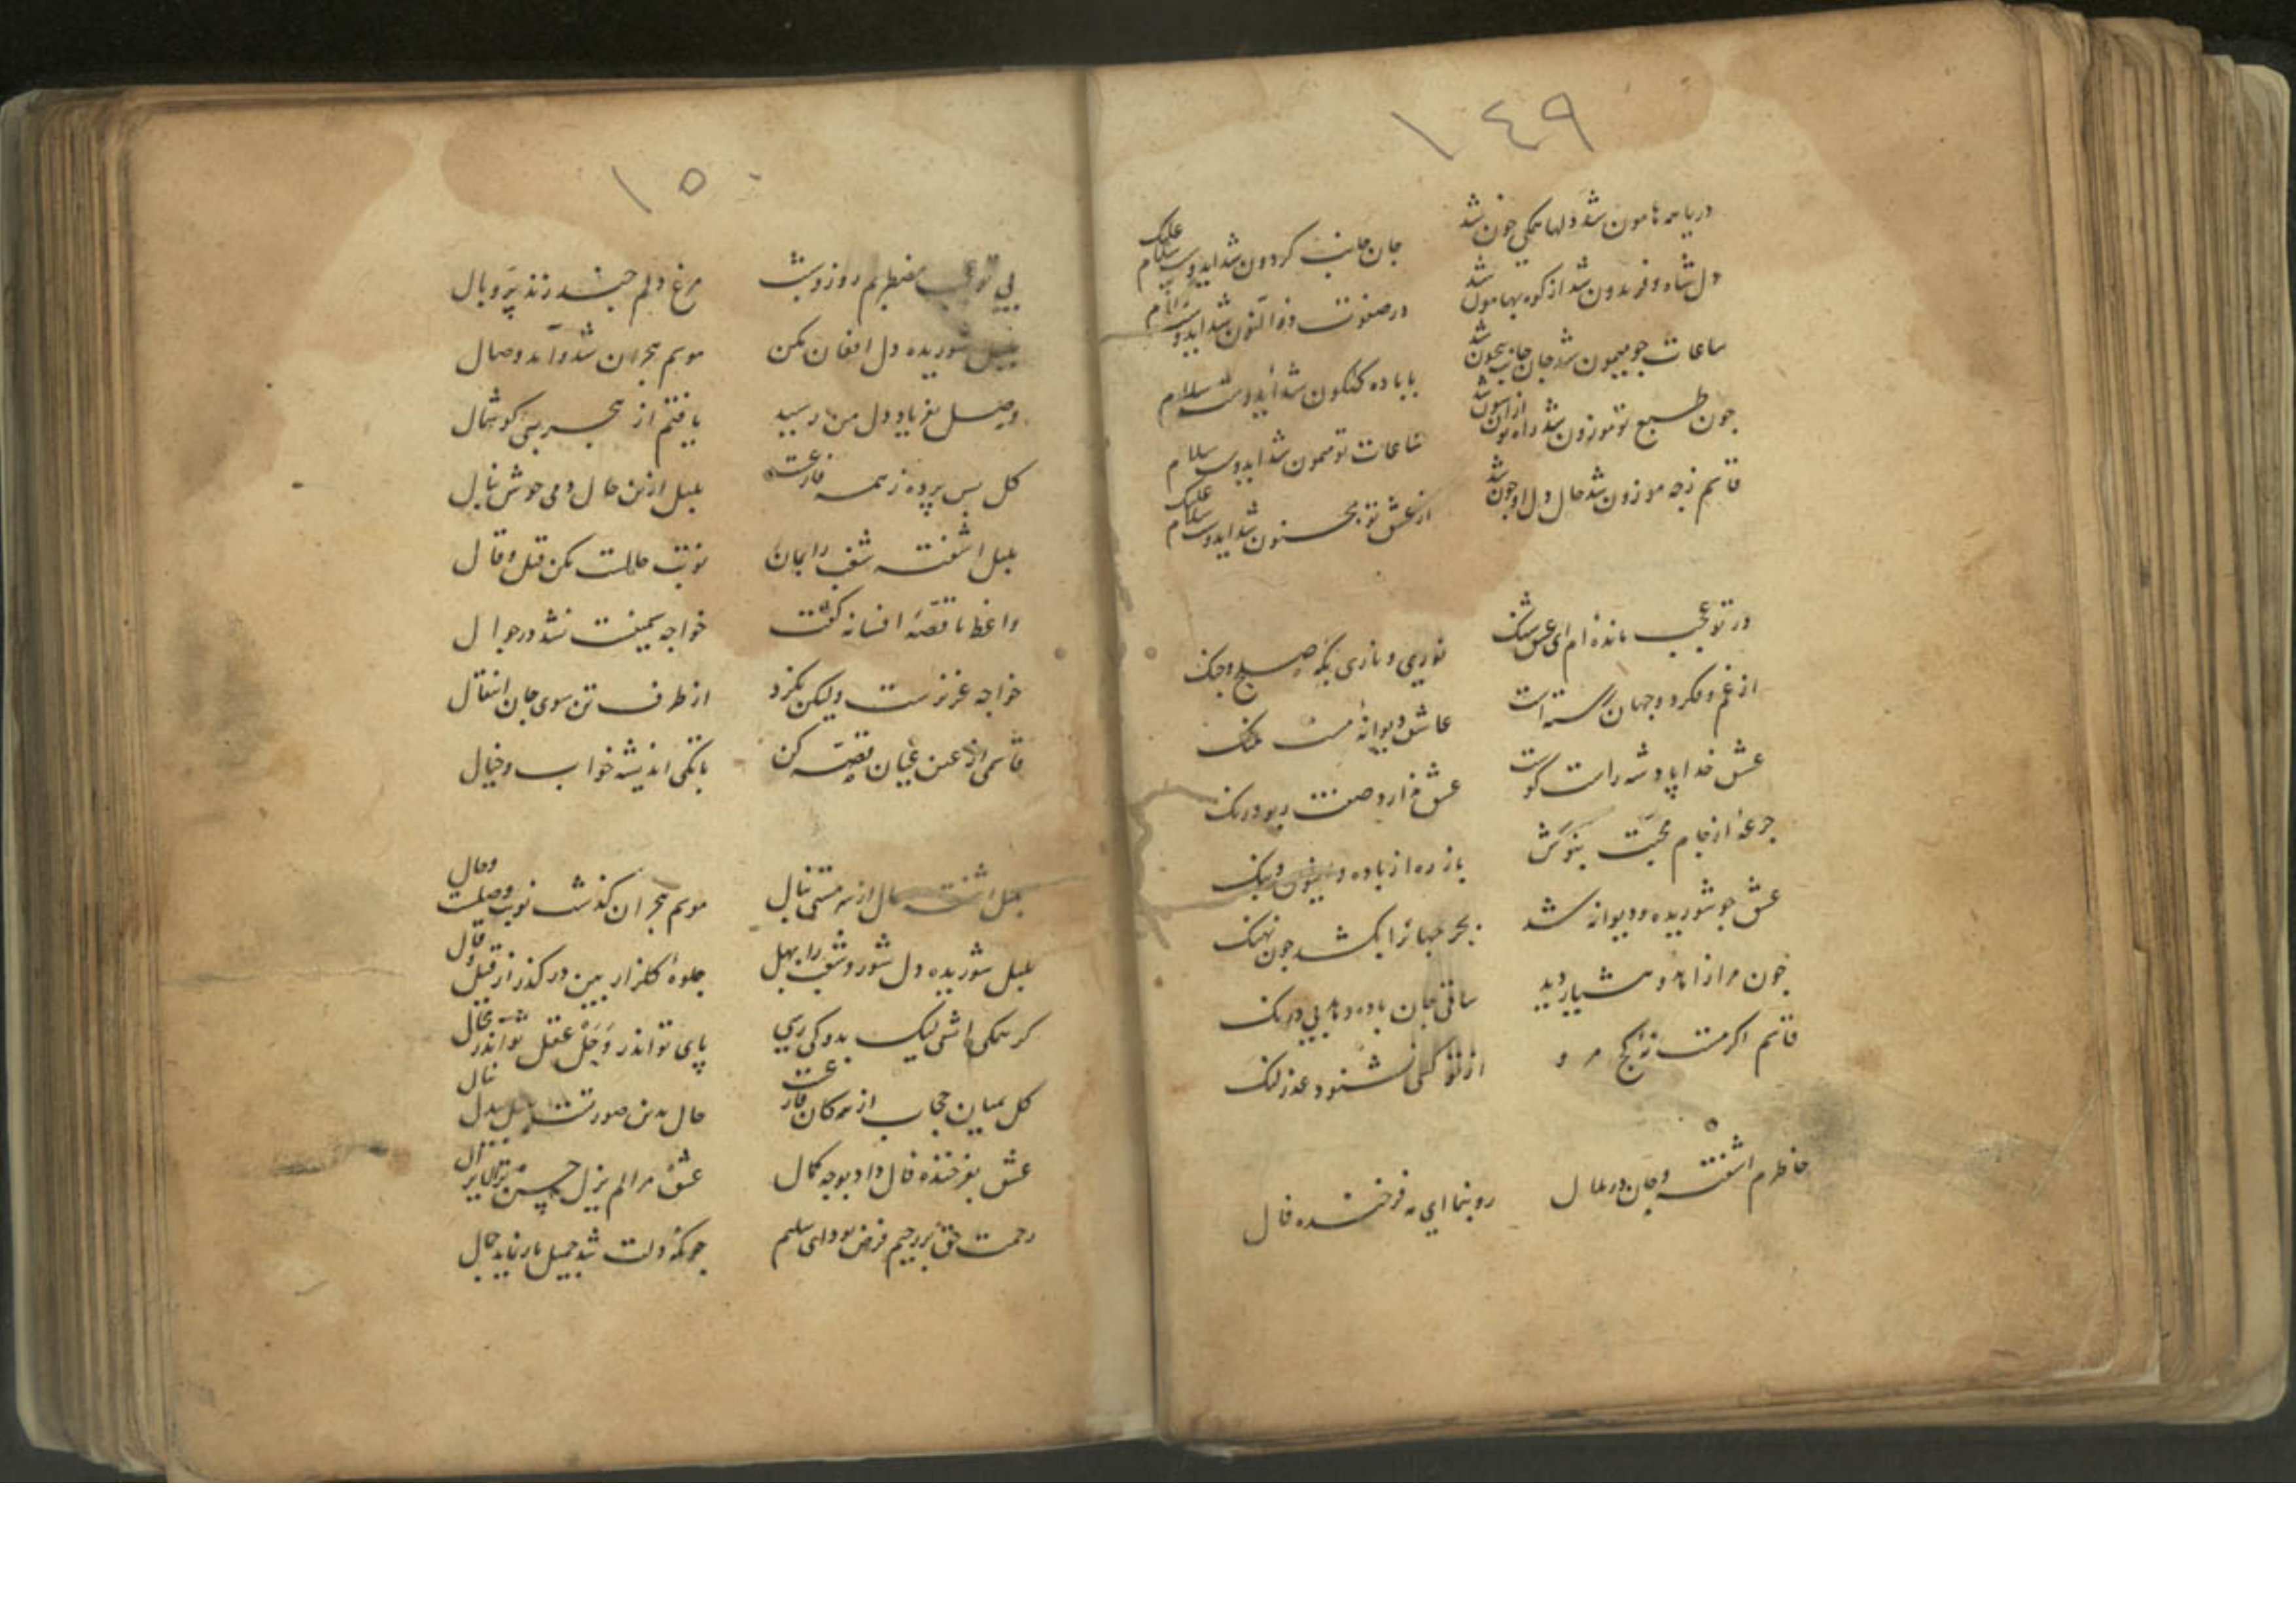 ١٤٩
دریا همه هامون شد دلها همگی خون شد
جان جانب کردون شد ای دوست سلام علیک
دل شاه و فریدون شد از کوه بهامون شد
در صفوت ذوالنون شد ای دوست سلام
ساعات جو میمون شد جان جانب بیچون شد
با باده کلکون شد ای دوست سلام
جون طبع تو موزون شد
ساعات تو میمون شد ای دوست سلام
قاسم زجه موزون شد حال دل او جون شد
از عشق تو مجنون شد ای دوست سلام علیک
در تو عجب مانده ام ای عشق شنک
نوری و ناری بکه صلح و جنک
از غم و فکر دو جهان رسته است
عاشق دیوانه مست ملنک
عشق خدا پادشه راست کوست
عشق ندارد صفت ریو و رنک
جرعه از جام محبت بنوش
باز ره از باده و افیون و بنک
عشق جو شوریده و دیوانه شد
بحر جهانرا بکشد جون نهنک
جون مرا زاهد و هشیار دید
ساقی جان باده دهد بی درنک
قاسم اکر مست نه کج مرو
از تو کسی نشنود عذر لنک
خاطرم اشفته و جان در ملال
رو بنما ای مه فرخنده فال
١٥٠
بی تو عجب مضطربم روز و شب
مرغ دلم جند زند پر و بال
بلبل شوریده دل افغان مکن
موسم هجران شد و آمد وصال
وصل بفریاد دل من رسید
یافتم از هجر بسی کوشمال
کل بس پرده ز همه فارغست
بلبل ازین حال دمی خوش بنال
بلبل اشفته شغب را بمان
نوبت حالست مکن قیل و قال
واعظ ما قصه افسانه کفت
خواجه بمیفت نشد در جوال
خواجه عزیزست ولیکن نکرد
از طرف تن سوی جان انتقال
قاسمی از عین عیان قصه کن
تا بکی اندیشه خواب و خیال
بلبل اشفته حال از سر مستی بنال
موسم هجران کذشت نوبت وصلست و حال
بلبل شوریده دل شور و شغب را بهل
جلوه کلزار بین در کذر از قیل و قال
کر همکی اتشی لیک بدو کی رسی
پای تو اندر وحل عقل تو اندر عقال
کل بمیان حجاب از همکان فارغست
حال بدین صورتست بلبل بیدل بنال
عشق بفرخنده فال داد بوجه کمال
عشق مرا لم یزل حسن ترا لایزال
رحمت حق بر رحیم فرض بود ای سلیم
جونکه دلت شد جمیل یار نماید جمال